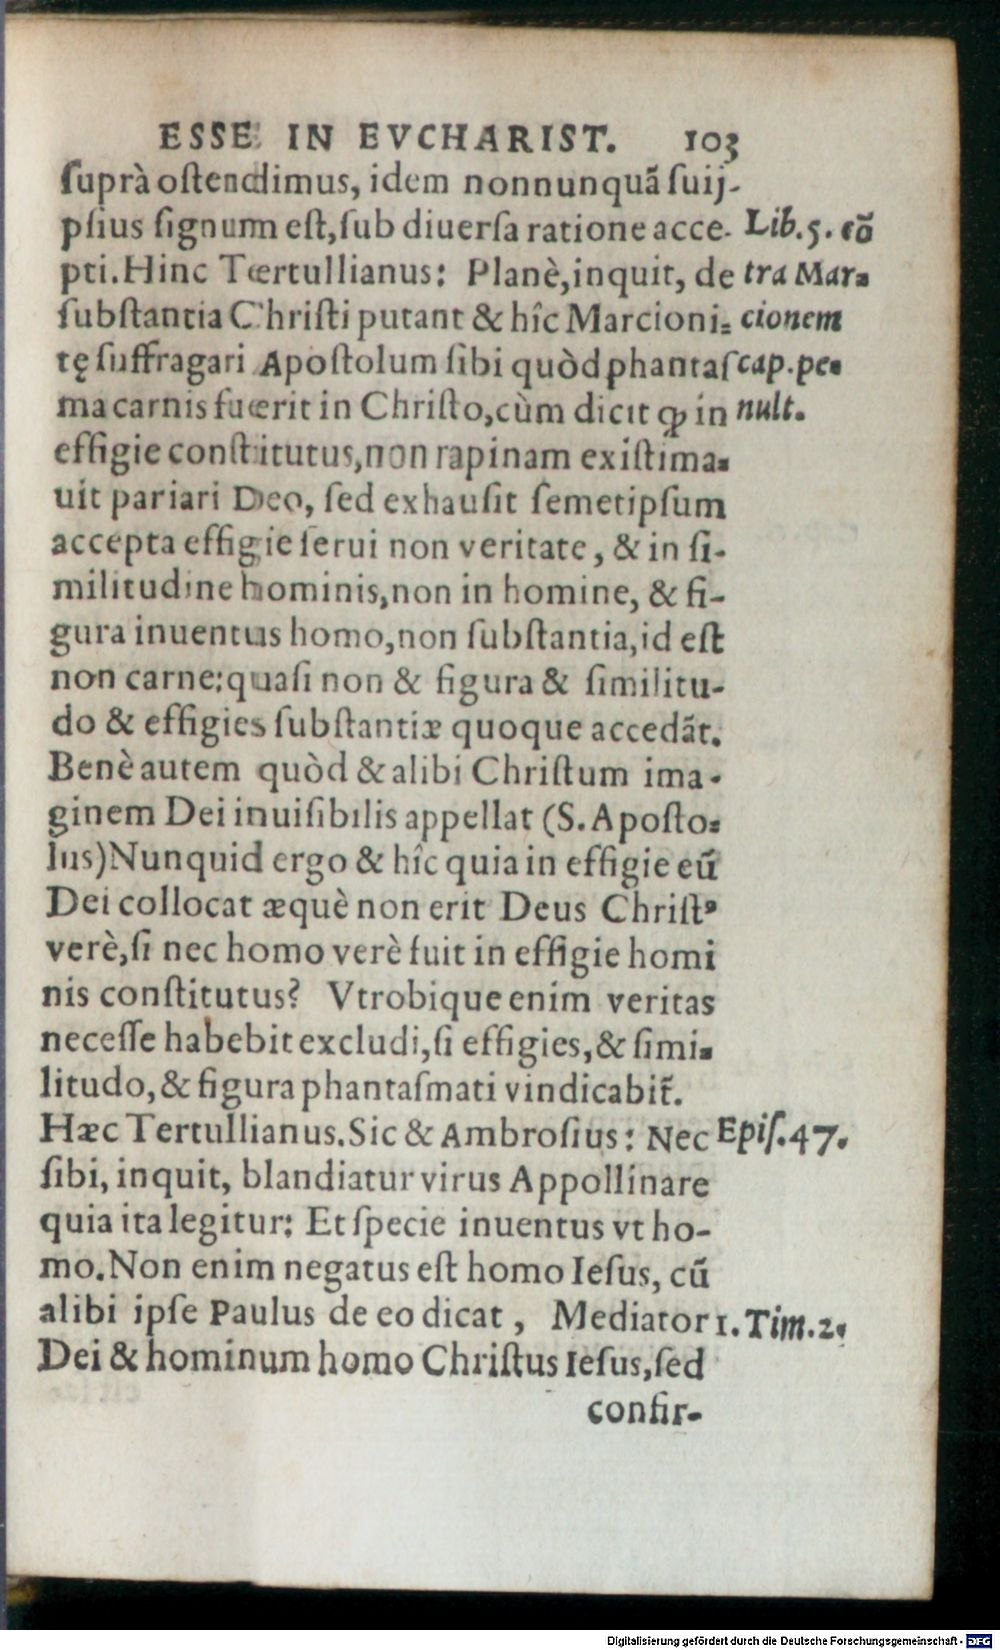 ESSE IN EVCHARIST. 103
ſuprà oſtendimus, idem nonnunquã ſuij-
pſius ſignum eſt, ſub diuerſa ratione acce-
Lib. 5. cõ
pti. Hinc Tertullianus: Planè, inquit, de
tra Mar-
ſubſtantia Chriſti putant & hîc Marcioni-
cionem
tę ſuffragari Apoſtolum ſibi quòd phantaſ
cap. pe-
ma carnis fuerit in Chriſto, cùm dicit ꝙ in
nult.
effigie conſtitutus, non rapinam exiſtima-
uit pariari Deo, ſed exhauſit ſemetipſum
accepta effigie ſerui non veritate, & in ſi-
militudine hominis, non in homine, & fi-
gura inuentus homo, non ſubſtantia, id eſt
non carne: quaſi non & figura & ſimilitu-
do & effigies ſubſtantiæ quoque accedãt.
Benè autem quòd & alibi Chriſtum ima-
ginem Dei inuiſibilis appellat (S. Apoſto-
lus) Nunquid ergo & hîc quia in effigie eũ
Dei collocat æquè non erit Deus Chriſtꝰ
verè, ſi nec homo verè fuit in effigie homi
nis conſtitutus? Vtrobique enim veritas
neceſſe habebit excludi, ſi effigies, & ſimi-
litudo, & figura phantaſmati vindicabit̃.
Hæc Tertullianus. Sic & Ambroſius: Nec
Epiſ. 47.
ſibi, inquit, blandiatur virus Appollinare
quia ita legitur: Et ſpecie inuentus vt ho-
mo. Non enim negatus eſt homo Ieſus, cũ
alibi ipſe Paulus de eo dicat, Mediator
1. Tim. 2.
Dei & hominum homo Chriſtus Ieſus, ſed
confir-
Digitalisierung gefördert durch die Deutsche Forschungsgemeinschaft - DFG